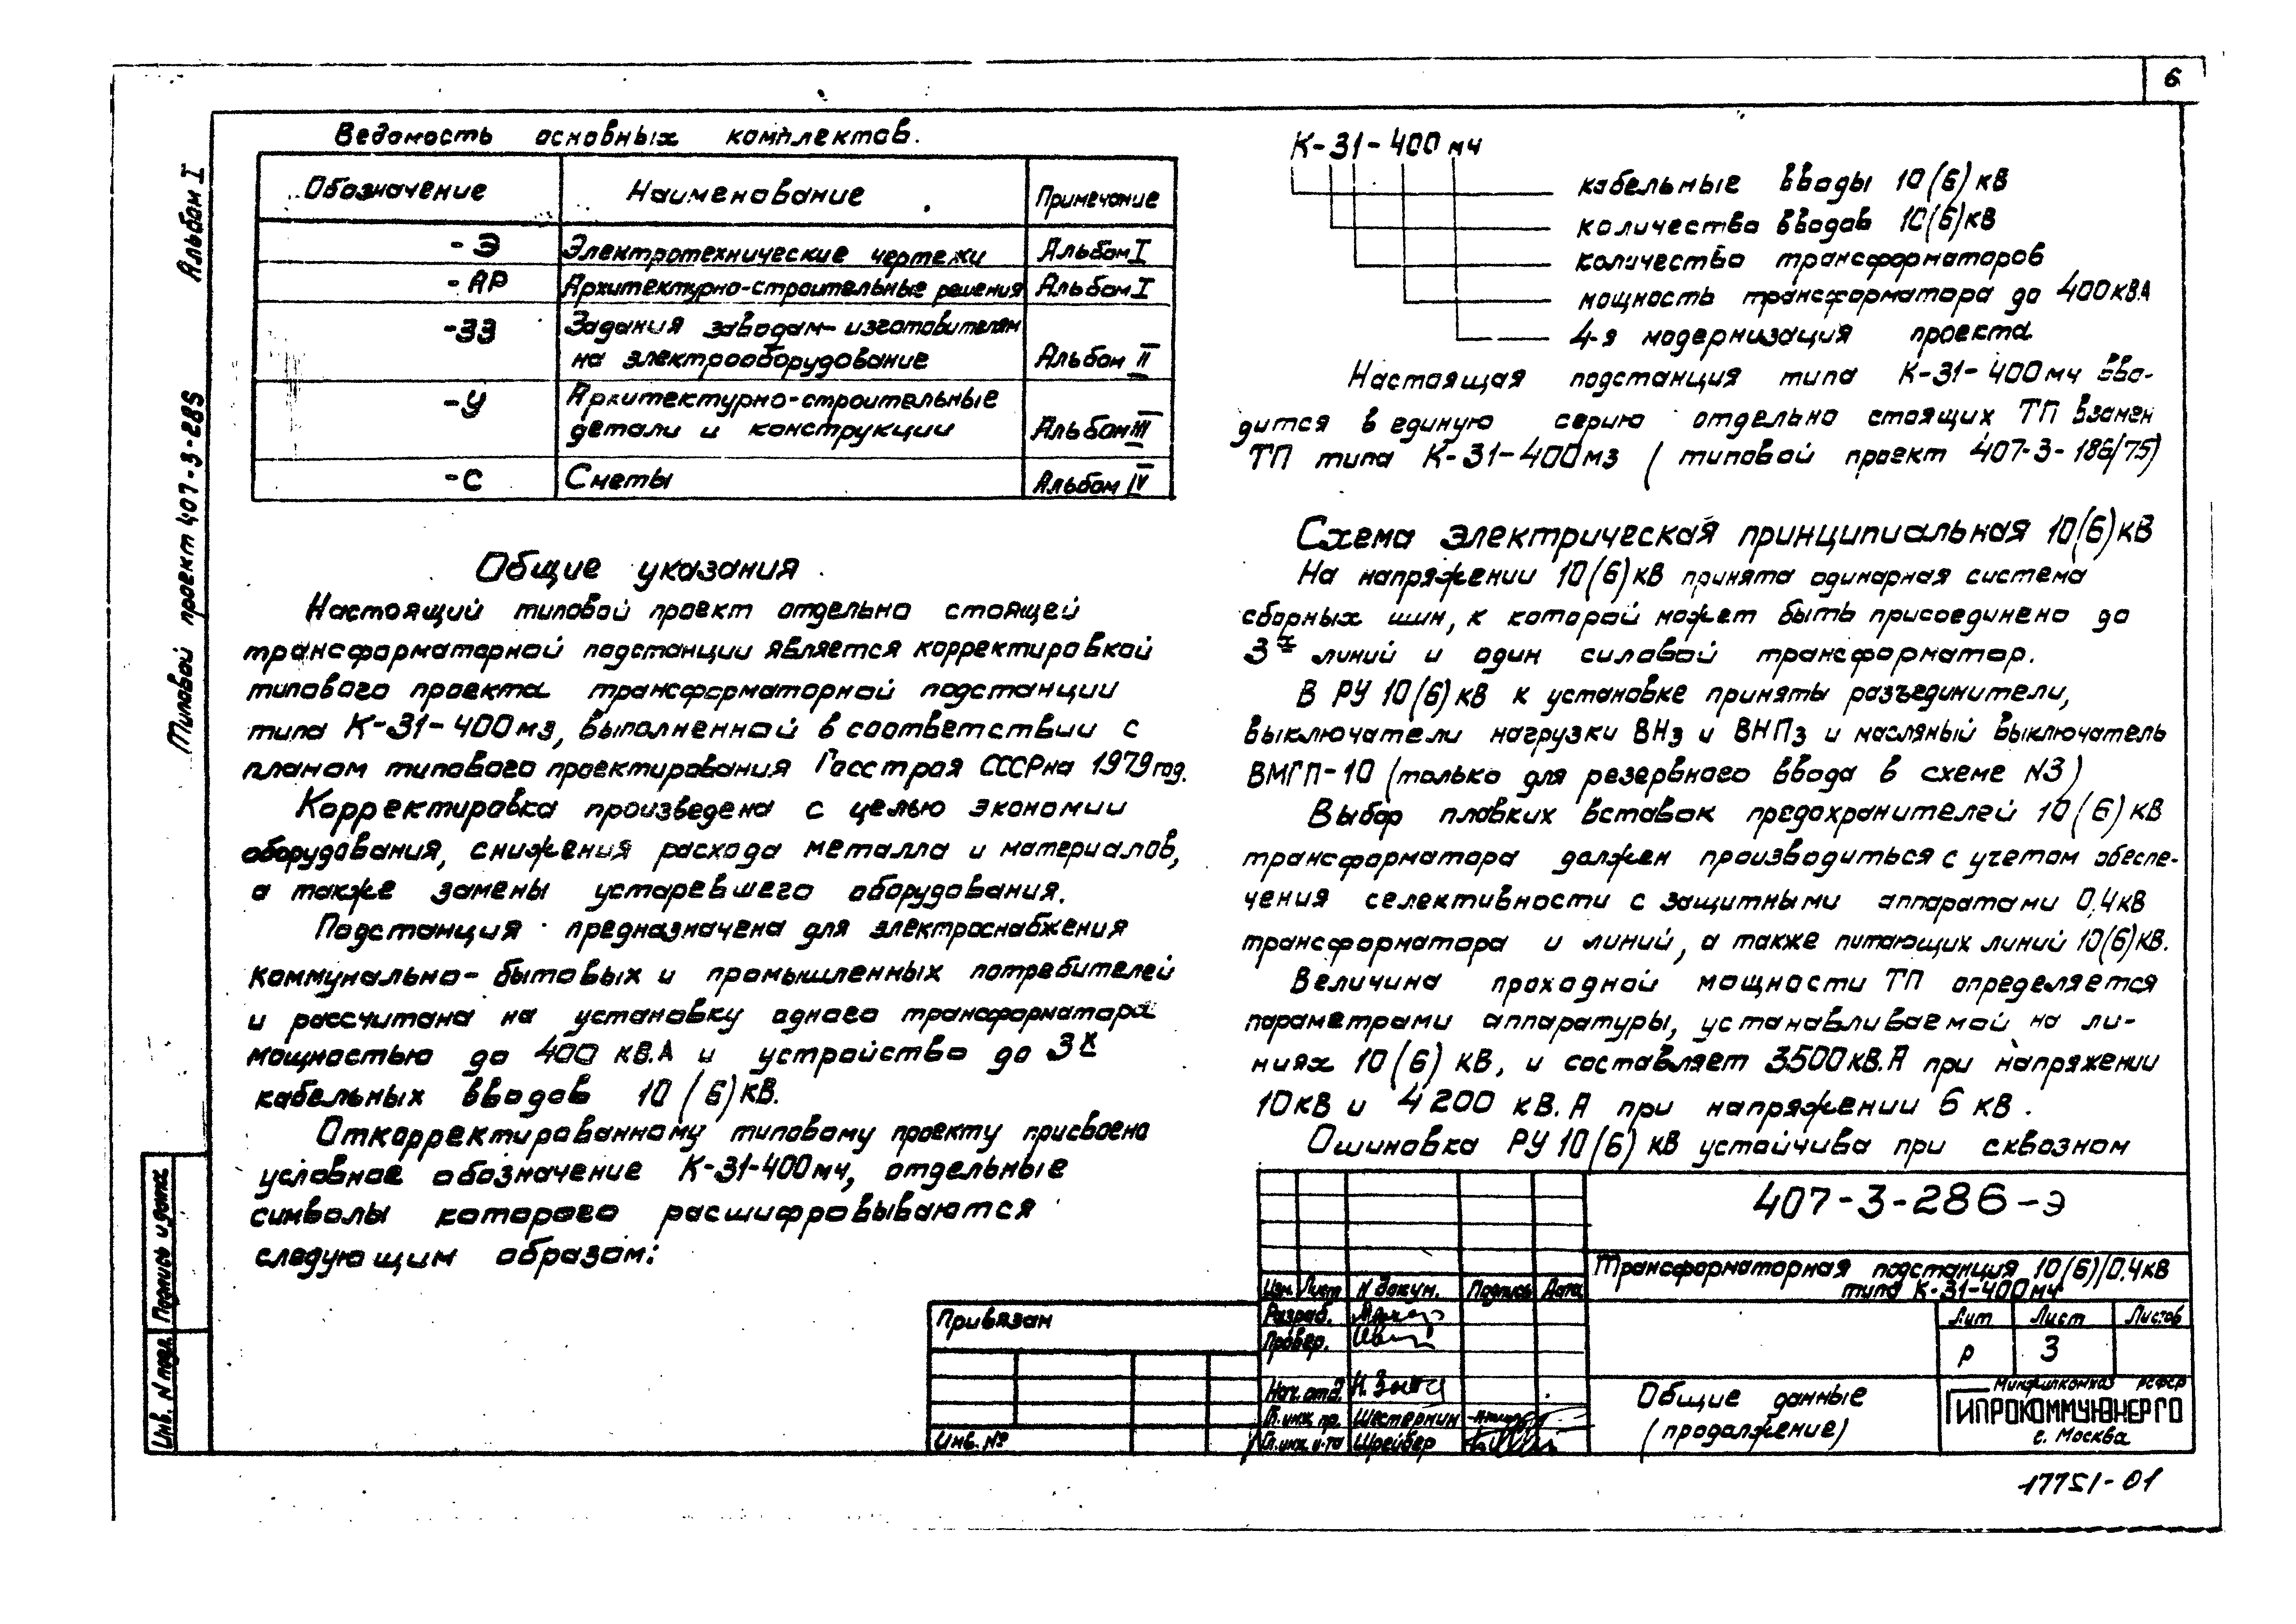 6
Альбом I
Типовой проект 407-3-286
Инв. N подл. Подпись и дата
Ведомость основных комплектов.
Обозначение Наименование Примечание
-Э Электротехнические чертежи Альбом I
-АР Архитектурно-строительные решения Альбом I
-ЗЗ Задания заводам-изготовителям
на электрооборудование Альбом II
-У Архитектурно-строительные
детали и конструкции Альбом III
-С Сметы Альбом IV
Общие указания
Настоящий типовой проект отдельно стоящей
трансформаторной подстанции является корректировкой
типового проекта трансформаторной подстанции
типа К-31-400м3, выполненной в соответствии с
планом типового проектирования Госстроя СССР на 1979год.
Корректировка произведена с целью экономии
оборудования, снижения расхода металла и материалов,
а также замены устаревшего оборудования.
Подстанция предназначена для электроснабжения
коммунально-бытовых и промышленных потребителей
и рассчитана на установку одного трансформатора
мощностью до 400 кВ.А и устройство до 3х
кабельных вводов 10(6)кВ.
Откорректированному типовому проекту присвоено
условное обозначение К-31-400м4, отдельные
символы которого расшифровываются
следующим образом:
К-31-400м4
кабельные вводы 10(6)кВ
количество вводов 10(6)кВ
количество трансформаторов
мощность трансформатора до 400кВ.А
4-я модернизация проекта
Настоящая подстанция типа К-31-400м4 вво-
дится в единую серию отдельно стоящих ТП взамен
ТП типа К-31-400м3 (типовой проект 407-3-186/75)
Схема электрическая принципиальная 10(6)кВ
На напряжении 10(6)кВ принята одинарная система
сборных шин, к которой может быть присоединено до
3х линий и один силовой трансформатор.
В РУ 10(6)кВ к установке приняты разъединители,
выключатели нагрузки ВНз и ВНПз и масляный выключатель
ВМГП-10 (только для резервного ввода в схеме N3)
Выбор плавких вставок предохранителей 10(6)кВ
трансформатора должен производиться с учетом обеспе-
чения селективности с защитными аппаратами 0,4кВ
трансформатора и линий, а также питающих линий 10(6)кВ.
Величина проходной мощности ТП определяется
параметрами аппаратуры, устанавливаемой на ли-
ниях 10(6) кВ, и составляет 3500кВ.А при напряжении
10кВ и 4200 кВ.А при напряжении 6 кВ.
Ошиновка РУ 10(6) кВ устойчива при сквозном
Привязан
Инв. №
Изм. Лист N докум. Подпись Дата
Разраб.
Провер.
Нач. отд.
Гл. инж. пр. Шестернин
Гл. инж. и-та Шрейбер
407-3-286-Э
Трансформаторная подстанция 10(6)/0,4кВ
типа К-31-400м4
Лит Лист Листов
р 3
Общие данные
(продолжение)
Минжилкомхоз РСФСР
ГИПРОКОММУНЭНЕРГО
г. Москва
17751-01